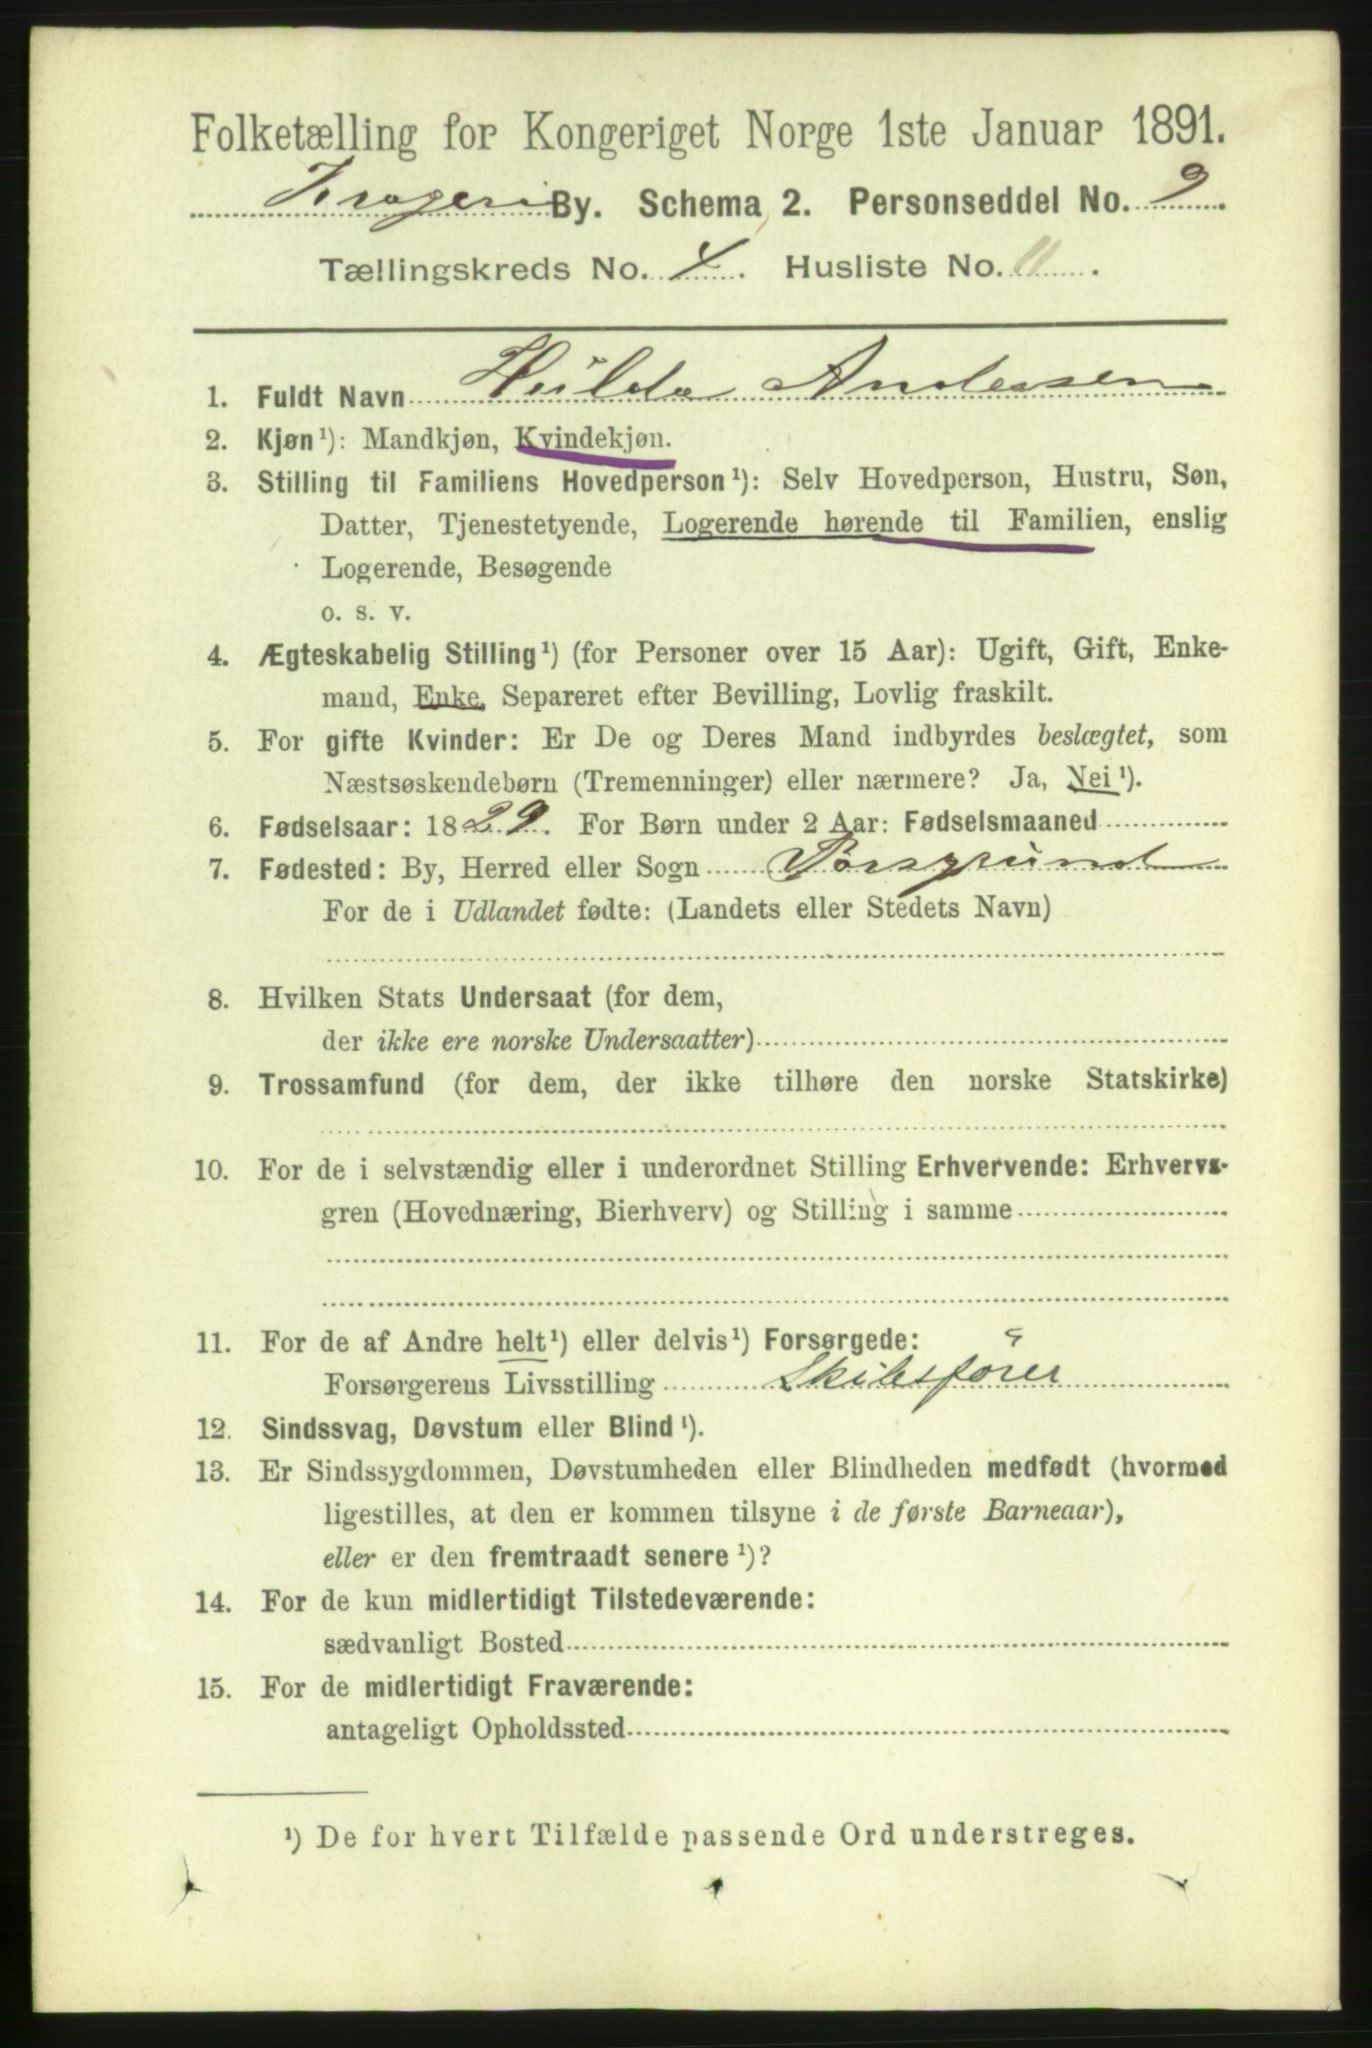 Folketælling for Kongeriget Norge 1ste Januar 1891.
Kragerø By. Schema 2. Personseddel No. 9.
Tællingskreds No. 4. Husliste No. 11.
1. Fuldt Navn Hulda Andersen
2. Kjøn¹): Mandkjøn, Kvindekjøn.
3. Stilling til Familiens Hovedperson¹): Selv Hovedperson, Hustru, Søn,
Datter, Tjenestetyende, Logerende hørende til Familien, enslig
Logerende, Besøgende
o. s. v.
4. Ægteskabelig Stilling¹) (for Personer over 15 Aar): Ugift, Gift, Enke-
mand, Enke, Separeret efter Bevilling, Lovlig fraskilt.
5. For gifte Kvinder: Er De og Deres Mand indbyrdes beslægtet, som
Næstsøskendebørn (Tremenninger) eller nærmere? Ja, Nei¹).
6. Fødselsaar: 1829. For Børn under 2 Aar: Fødselsmaaned
7. Fødested: By, Herred eller Sogn Porsgrund
For de i Udlandet fødte: (Landets eller Stedets Navn)
8. Hvilken Stats Undersaat (for dem,
der ikke ere norske Undersaatter)
9. Trossamfund (for dem, der ikke tilhøre den norske Statskirke)
10. For de i selvstændig eller i underordnet Stilling Erhvervende: Erhvervs-
gren (Hovednæring, Bierhverv) og Stilling i samme
11. For de af Andre helt¹) eller delvis¹) Forsørgede:
Forsørgerens Livsstilling Skibsfører
12. Sindssvag, Døvstum eller Blind¹).
13. Er Sindssygdommen, Døvstumheden eller Blindheden medfødt (hvormed
ligestilles, at den er kommen tilsyne i de første Barneaar),
eller er den fremtraadt senere¹)?
14. For de kun midlertidigt Tilstedeværende:
sædvanligt Bosted
15. For de midlertidigt Fraværende:
antageligt Opholdssted
¹) De for hvert Tilfælde passende Ord understreges.